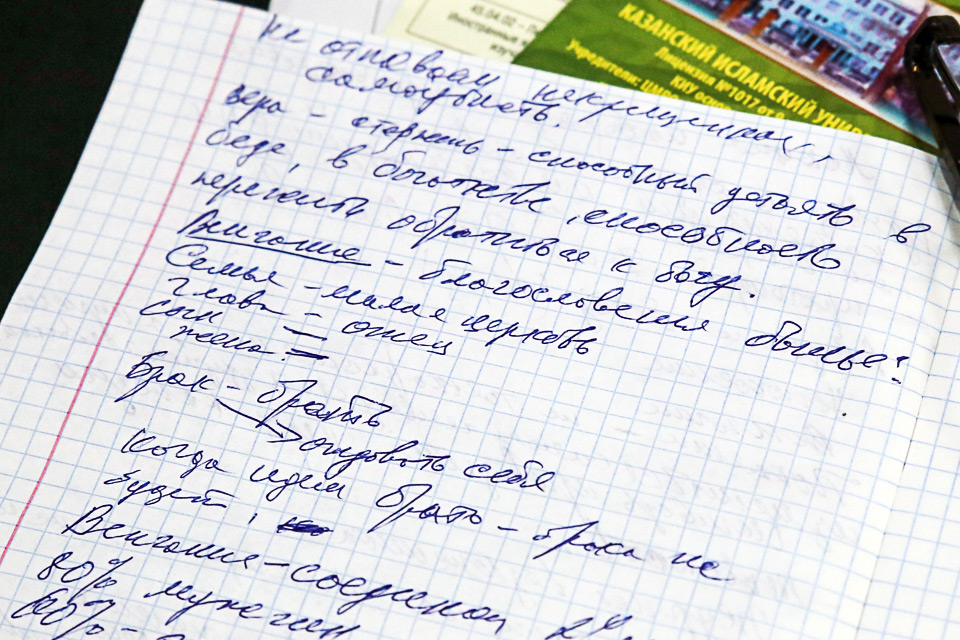 45.04.02 –
КАЗАНСКИЙ ИСЛАМСКИЙ УНИВ
Лицензия №1017 от
Учредители: ЦМР
КИУ осно
не отпеваем некрещеных,
самоубийц.
вера – стержень – способный устоять в
беде, в богатстве, способность
пережить обратиться к Богу.
Венчание – благословения божье:
Семья – малая церковь
глава – отец
сын =
жена =
Брак – брать
отдавать себя
Когда идем брать – брака не
будет,
Венчание – соединен 2
80% мужчин
60% –